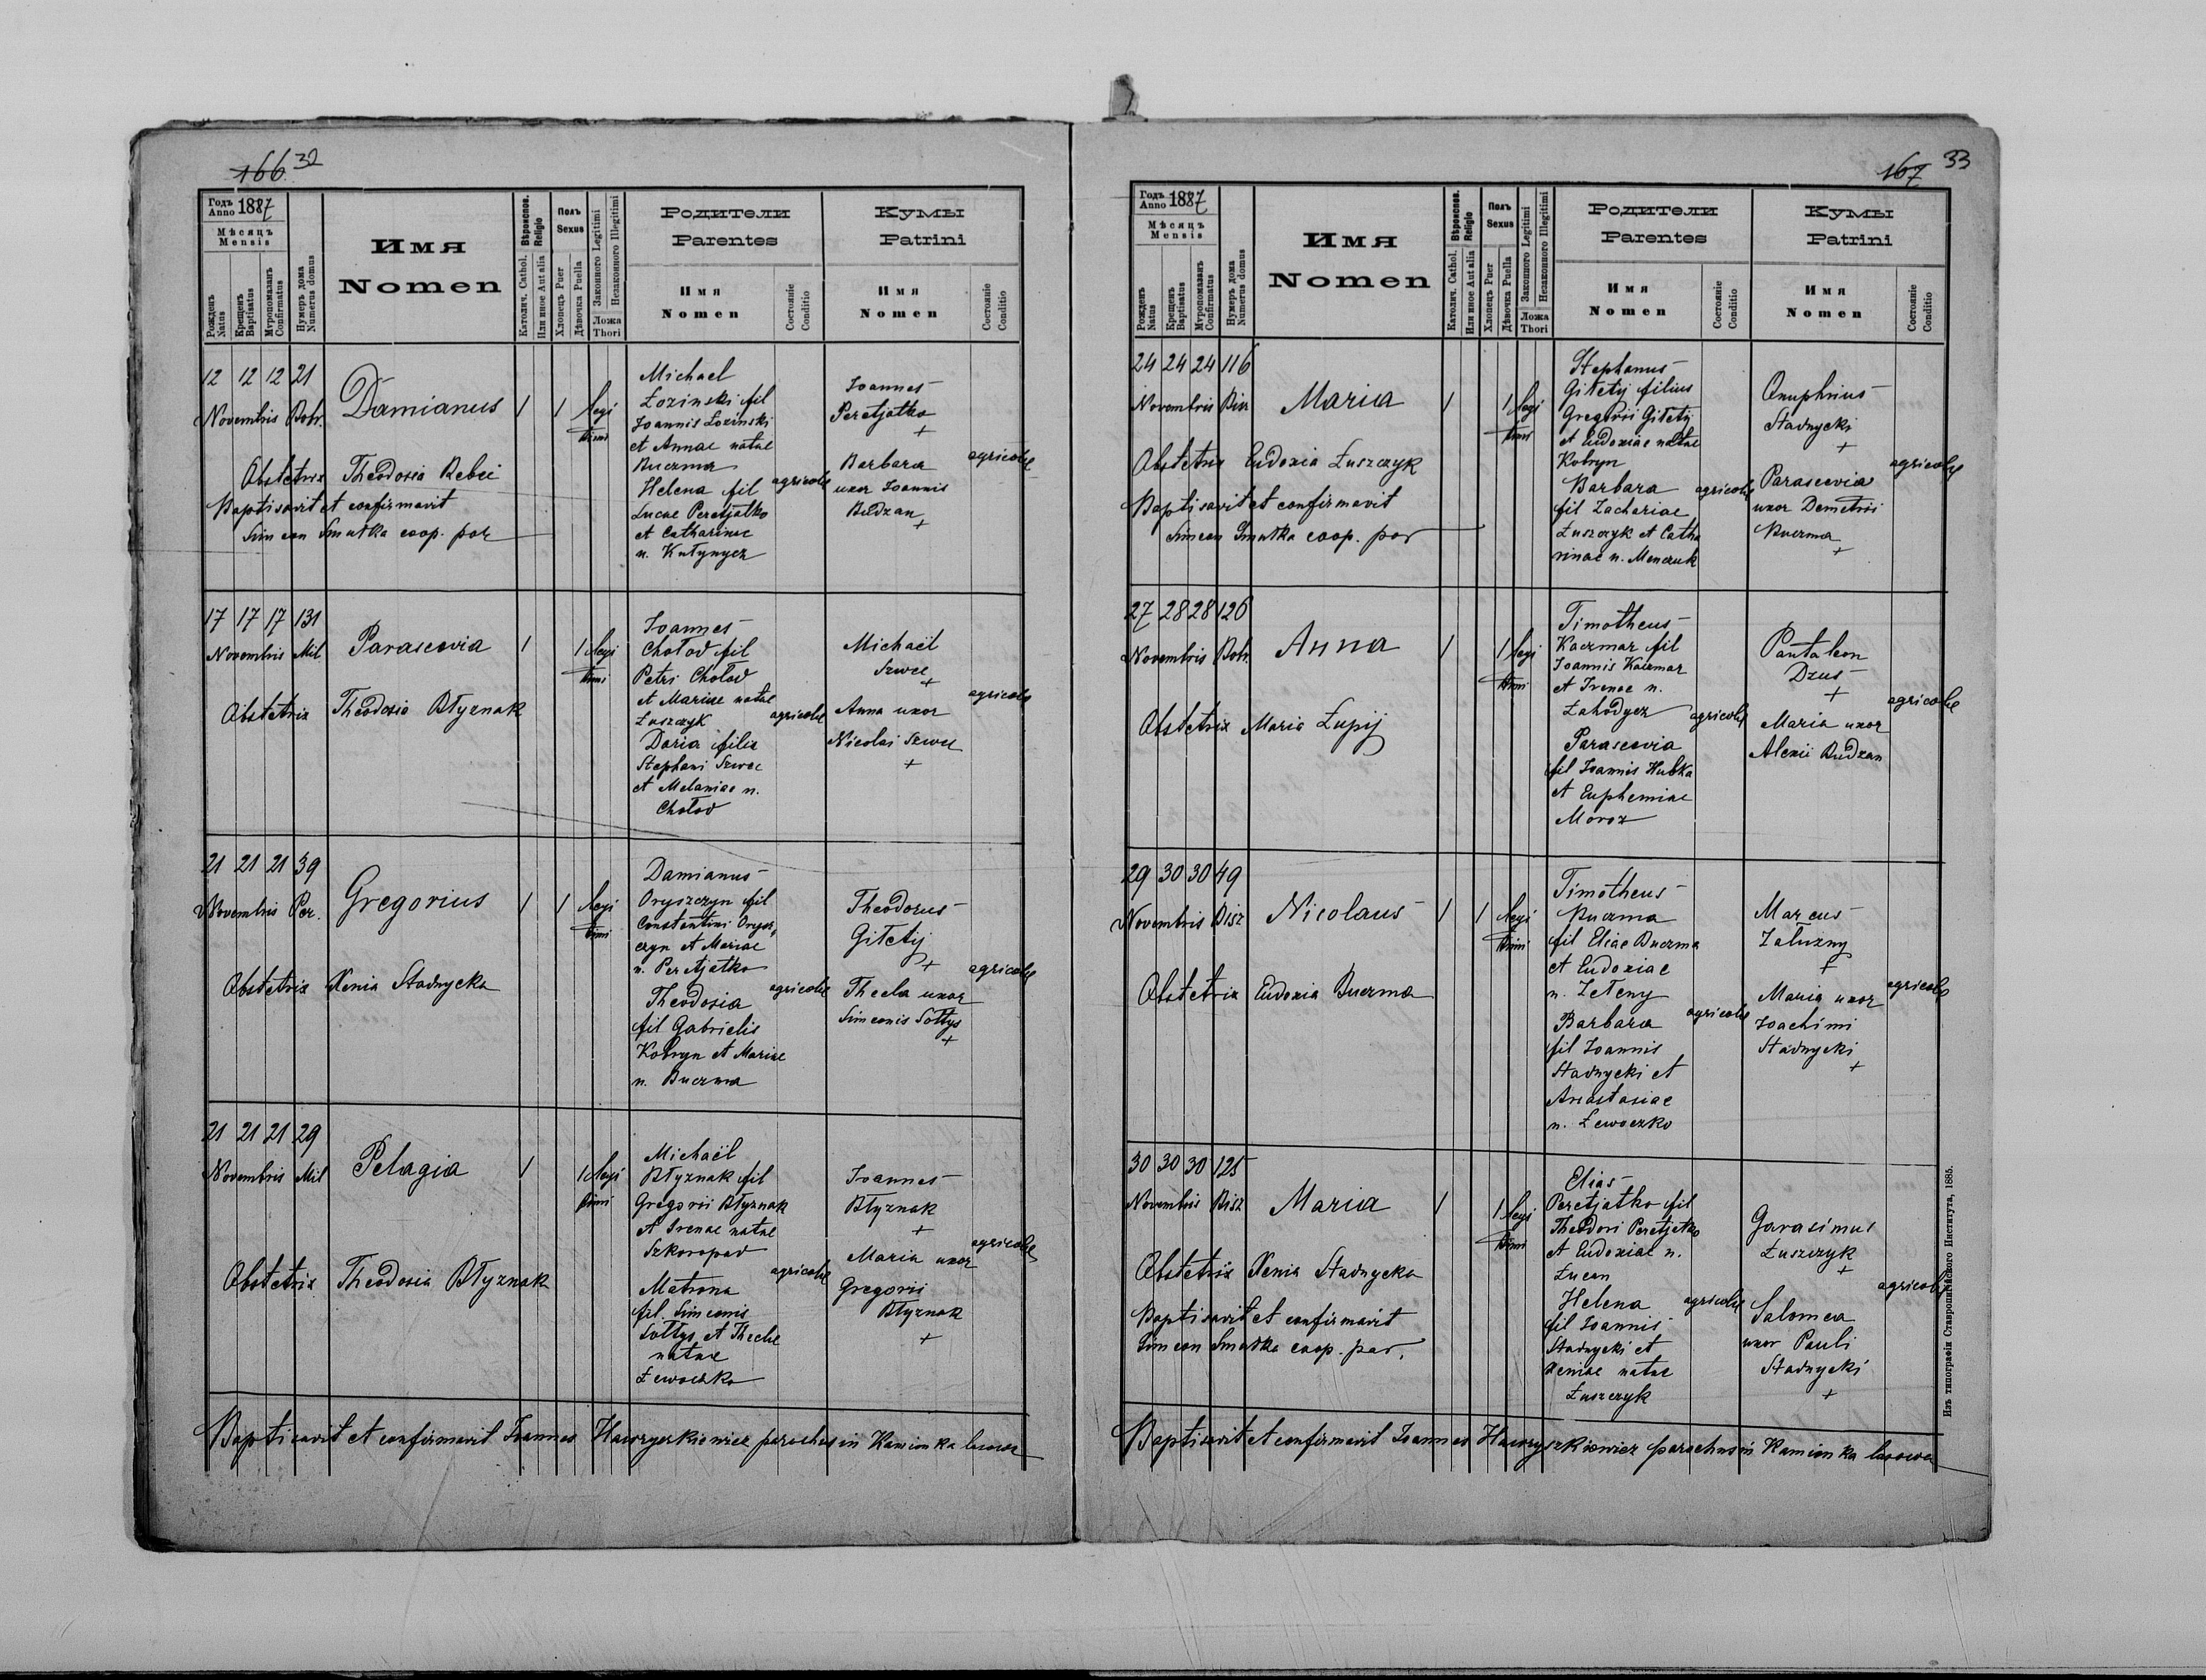 166. 32
Годъ Anno 1887
Мѣсяцъ Mensis
Рожденъ Natus
Крещенъ Baptisatus
Мѵропомазанъ Confirmatus
Нумеръ дома Numerus domus
Имя Nomen
Вѣроиспов. Religio
Католич. Cathol.
Или иное Aut alia
Полъ Sexus
Хлопецъ Puer
Дѣвочка Puella
Законного Legitimi
Незаконного Illegitimi
Ложа Thori
Родители Parentes
Имя Nomen
Состояніе Conditio
Кумы Patrini
Имя Nomen
Состояніе Conditio
12 12 12 21
Novembris Bobr.
Damianus
1 1 legi
timi
Michael
Łozinski fil
Joannis Łozinski
et Annae natae
Buczma
Helena fil
Lucae Peretjatko
et Catharinae
n. Kutynycz
agricolae
Joannes
Peretjatko
+
Barbara
uxor Joannis
Budzan
+
agricolae
Obstetrix Theodosia Bebei
Baptisavit et confirmavit
Simeon Smutka coop. par
17 17 17 131
Novembris Mil
Parascevia
1 1 legi
timi
Joannes
Chołod fil
Petri Chołod
et Mariae natae
Łuszczyk
Daria filia
Stephani Szwec
et Melaniae n.
Chołod
agricolae
Michaël
Szwec
+
Anna uxor
Nicolai Szwec
+
agricolae
Obstetrix Theodosia Błyznak
21 21 21 39
Novembris Per.
Gregorius
1 1 legi
timi
Damianus
Oryszczyn fil
Constantini Orysz,
czyn et Mariae
n. Peretjatko
Theodosia
fil Gabrielis
Kobryn et Mariae
n. Buczma
agricolae
Theodorus
Giletij
+
Thecla uxor
Simeonis Sołtys
+
agricolae
Obstetrix Xenia Stadnycka
21 21 21 29
Novembris Mil
Pelagia
1 1 legi
timi
Michaël
Błyznak fil
Gregorii Błyznak
et Irenae natae
Szkoropad
Matrona
fil. Simeonis
Sołtys et Theclae
natae
Łewoczko
agricolae
Joannes
Błyznak
+
Maria uxor
Gregorii
Błyznak
+
agricolae
Obstetrix Theodosia Błyznak
Baptisavit et confirmavit Joannes Hawryszkiewicz parochus in Kamionka lasowa
167 33
Годъ Anno 1887
Мѣсяцъ Mensis
Рожденъ Natus
Крещенъ Baptisatus
Мѵропомазанъ Confirmatus
Нумеръ дома Numerus domus
Имя Nomen
Вѣроиспов. Religio
Католич. Cathol.
Или иное Aut alia
Полъ Sexus
Хлопецъ Puer
Дѣвочка Puella
Законного Legitimi
Незаконного Illegitimi
Ложа Thori
Родители Parentes
Имя Nomen
Состояніе Conditio
Кумы Patrini
Имя Nomen
Состояніе Conditio
24 24 24 116
Novembris
Maria
1 1 legi
timi
Stephanus
Giletij filius
Gregorii Giletij
et Eudoxiae natae
Kobryn
Barbara
fil Zachariae
Łuszczyk et Catha
rinae n. Menczuk
agricolae
Onuphrius
Stadnycki
+
Parascevia
uxor Demetrii
Buczma
+
agricolae
Obstetrix Eudoxia Łuszczyk
Baptisavit et confirmavit
Simeon Smutka coop. par
27 28 28 126
Novembris Bobr.
Anna
1 1 legi
timi
Timotheus
Kaczmar fil
Joannis Kaczmar
et Irenae n.
Zahodycz
Parascevia
fil Joannis Hubka
et Euphemiae
Moroz
agricolae
Pantaleon
Dzus
+
Maria uxor
Alexii Budzan
agricolae
Obstetrix Maria Łupij
29 30 30 49
Novembris Bisz
Nicolaus
1 1 legi
timi
Timotheus
Buczma
fil Eliae Buczma
et Eudoxiae
n. Zełeny
Barbara
fil Joannis
Stadnycki et
Anastasiae
n. Łewoczko
agricolae
Marcus
Załuzny
+
Maria uxor
Joachimi
Stadnycki
+
agricolae
Obstetrix Eudoxia Buczma
30 30 30 125
Novembris Bisz
Maria
1 1 legi
timi
Elias
Peretjatko fil
Theodori Peretjatko
et Eudoxiae n.
Łucan
Helena
fil Joannis
Stadnycki et
Xeniae natae
Łuszczyk
agricolae
Garasimus
Łuszczyk
+
Salomea
uxor Pauli
Stadnycki
+
agricolae
Obstetrix Xenia Stadnycka
Baptisavit et confirmavit
Simeon Smutka coop. par.
Baptisavit et confirmavit Joannes Hawryszkiewicz parochus in Kamionka lasowa
Изъ типографіи Ставропигійского Института, 1885.